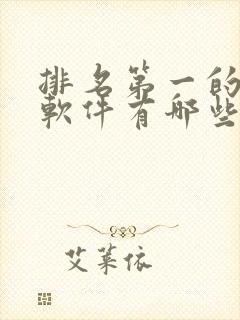 排名第一的
軟件有哪些
艾萊依